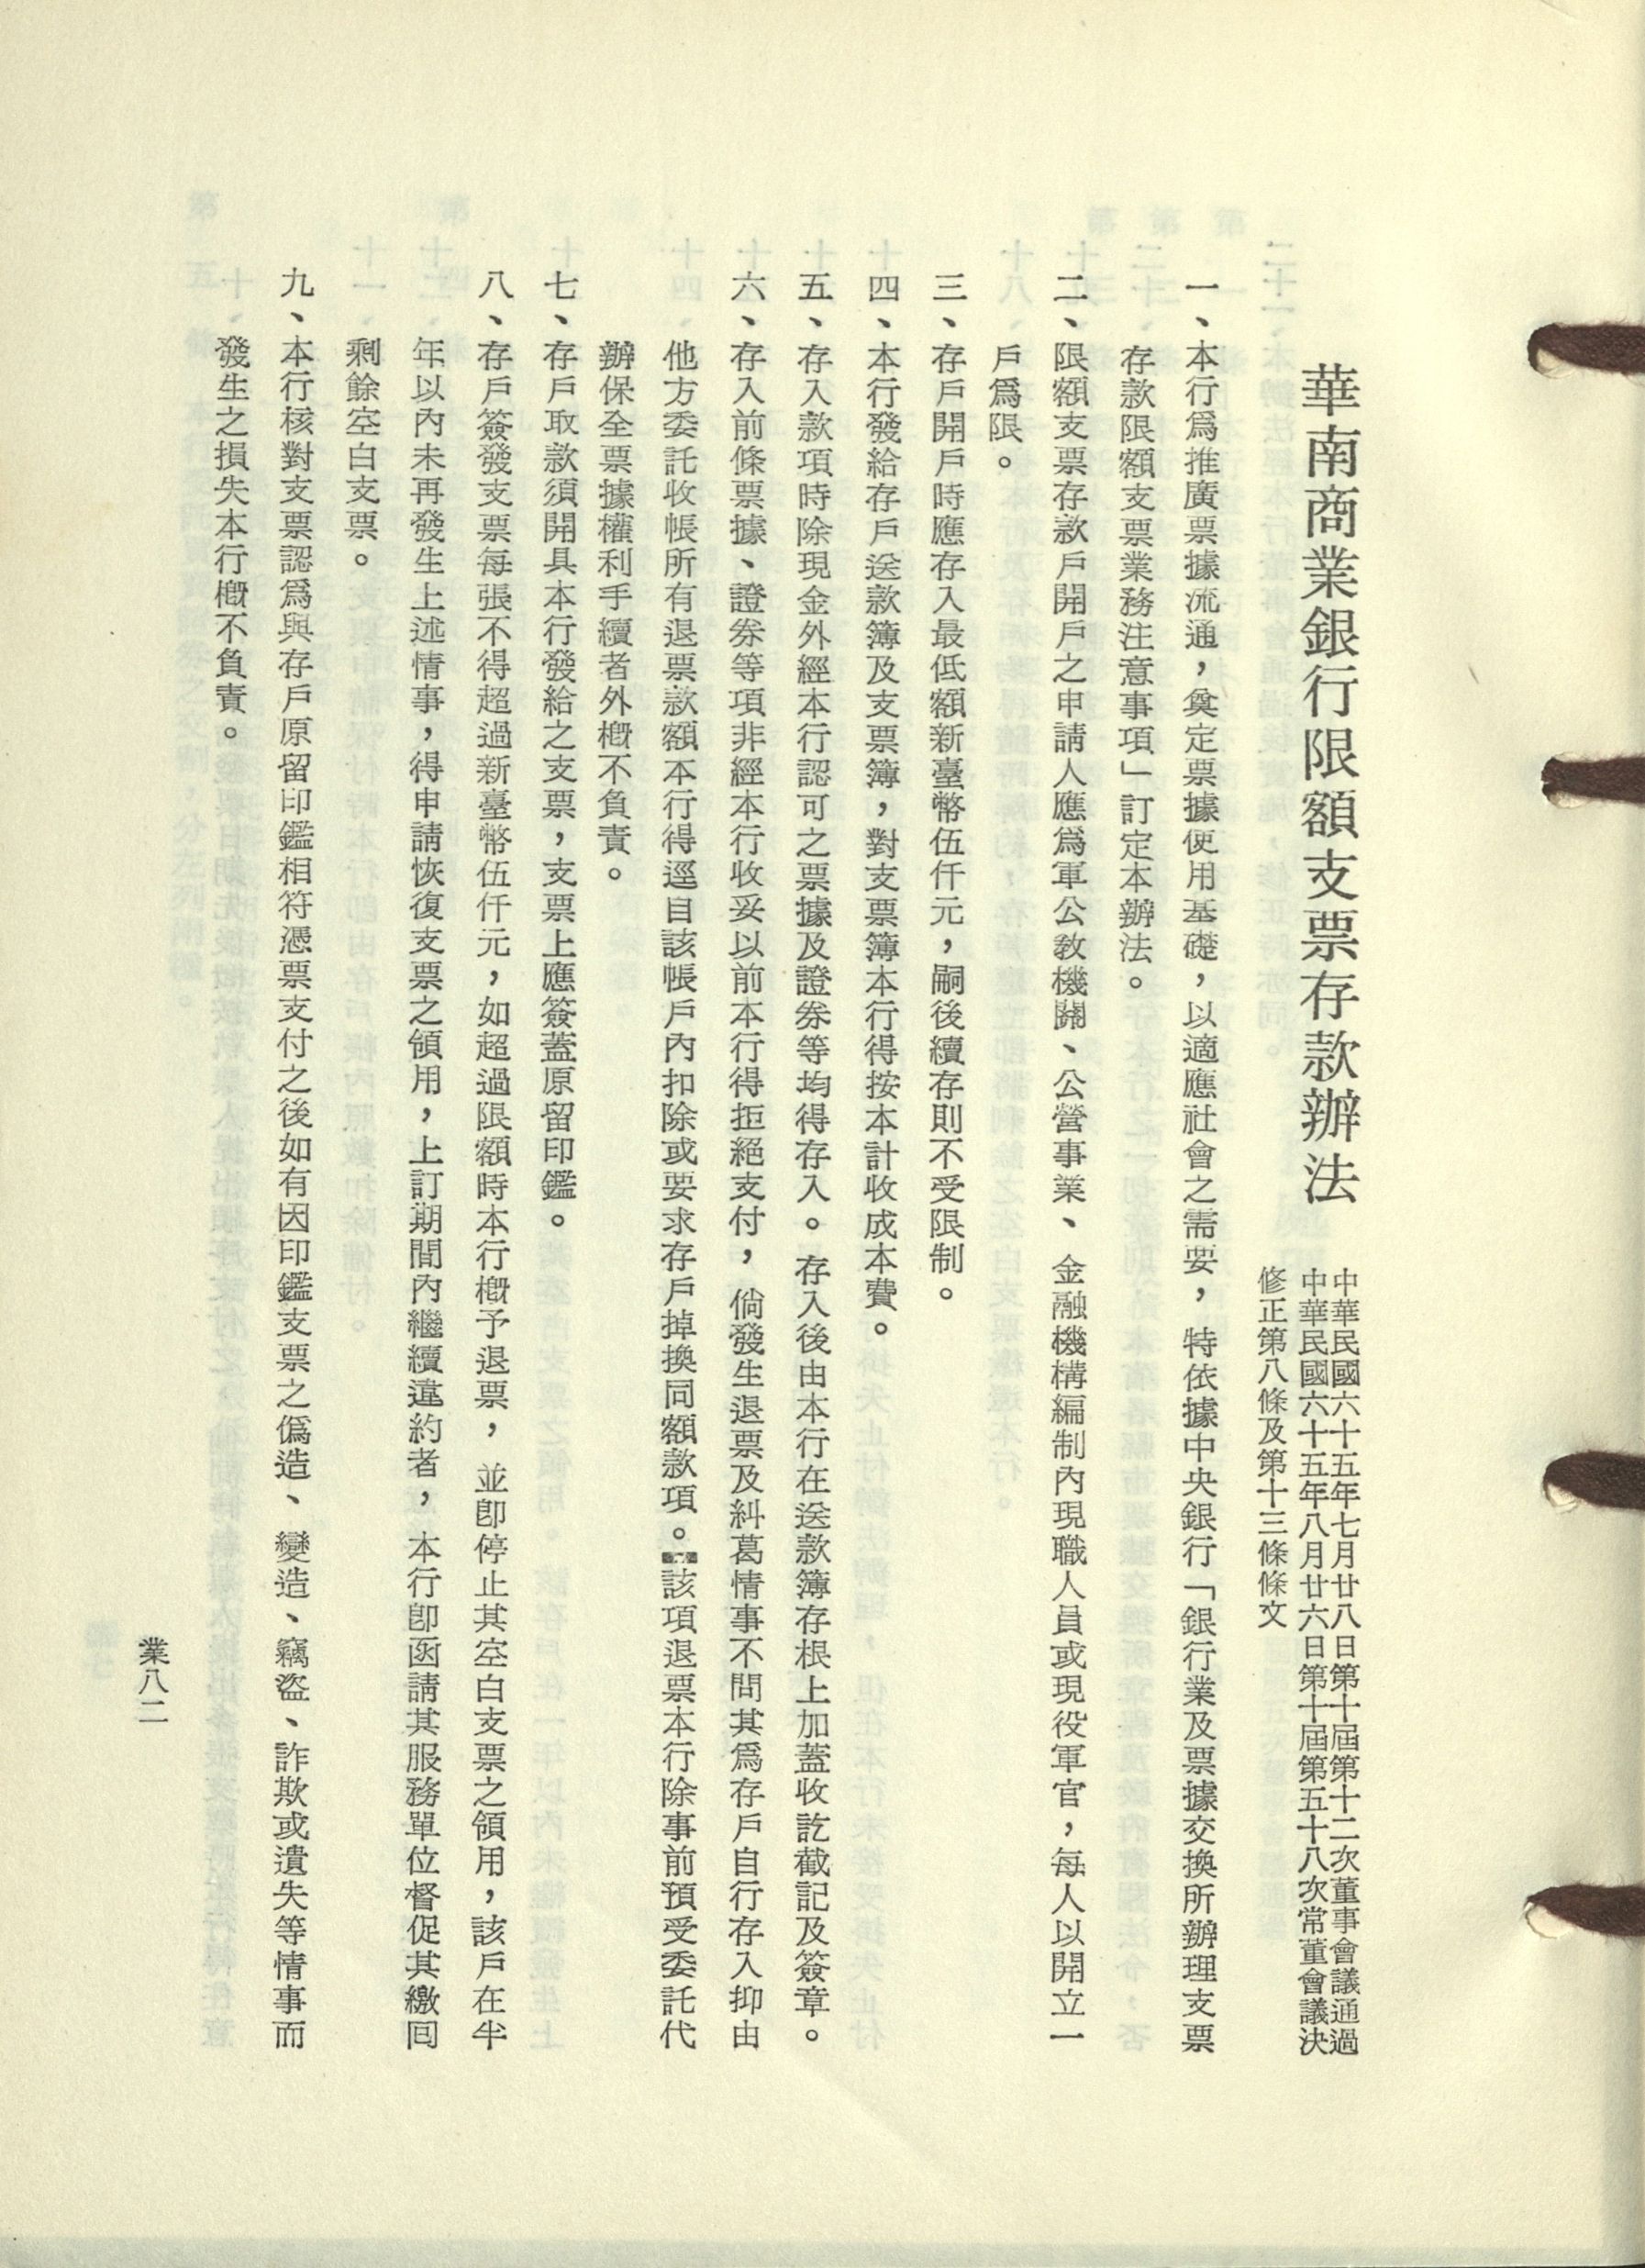 華南商業銀行限額支票存款辦法
中華民國六十五年七月廿八日第十屆第十二次董事會議通過
中華民國六十五年八月廿六日第十屆第五十八次常董會議決
修正第八條及第十三條條文
一、本行爲推廣票據流通，奠定票據使用基礎，以適應社會之需要，特依據中央銀行「銀行業及票據交換所辦理支票
存款限額支票業務注意事項」訂定本辦法。
二、限額支票存款戶開戶之申請人應爲軍公敎機關、公營事業、金融機構編制內現職人員或現役軍官，每人以開立一
戶爲限。
三、存戶開戶時應存入最低額新臺幣伍仟元，嗣後續存則不受限制。
四、本行發給存戶送款簿及支票簿，對支票簿本行得按本計收成本費。
五、存入款項時除現金外經本行認可之票據及證券等均得存入。存入後由本行在送款簿存根上加蓋收訖戳記及簽章。
六、存入前條票據、證券等項非經本行收妥以前本行得拒絕支付，倘發生退票及糾葛情事不問其爲存戶自行存入抑由
他方委託收帳所有退票款額本行得逕自該帳戶內扣除或要求存戶掉換同額款項。該項退票本行除事前預受委託代
辦保全票據權利手續者外槪不負責。
七、存戶取款須開具本行發給之支票，支票上應簽蓋原留印鑑。
八、存戶簽發支票每張不得超過新臺幣伍仟元，如超過限額時本行槪予退票，並卽停止其空白支票之領用，該戶在半
年以內未再發生上述情事，得申請恢復支票之領用，上訂期間內繼續違約者，本行卽函請其服務單位督促其繳回
剩餘空白支票。
九、本行核對支票認爲與存戶原留印鑑相符憑票支付之後如有因印鑑支票之僞造、變造、竊盜、詐欺或遺失等情事而
發生之損失本行槪不負責。
業八二